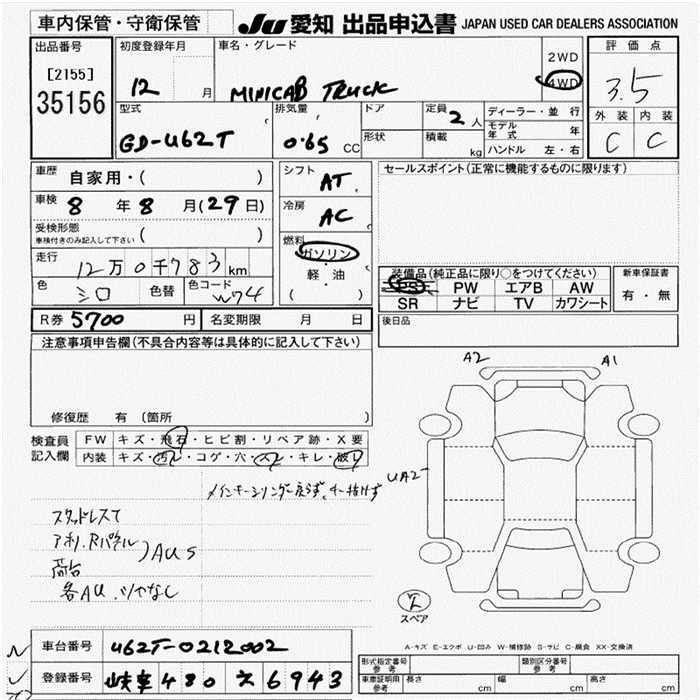 車内保管・守衛保管
JU 愛知 出品申込書 JAPAN USED CAR DEALERS ASSOCIATION
出品番号
[2155]
35156
初度登録年月
12 月
車名・グレード
MINICAB TRUCK
2WD
4WD
評価点
3.5
外装 内装
C C
型式
GD-U62T
排気量
0.65 CC
ドア
形状
定員
2 人
積載
kg
ディーラー・並行
モデル年式 年
ハンドル 左・右
車歴
自家用・( )
車検
8 年 8 月(29日)
受検形態
車検付きのみ記入して下さい ( )
走行
12万0千783 km
色
シロ
色替
色コード
W74
シフト
AT
冷房
AC
燃料
ガソリン
・
軽・油
( )
セールスポイント(正常に機能するものに限ります)
装備品(純正品に限り○をつけてください)
PS PW エアB AW
SR ナビ TV カワシート
新車保証書
有・無
R券 5700 円
名変期限 月 日
後日品
注意事項申告欄(不具合内容等は具体的に記入して下さい)
修復歴 有(箇所 )
検査員
記入欄
FW キズ・飛石・ヒビ割・リペア跡・X要
内装 キズ・汚レ・コゲ・穴・スレ・キレ・破レ
メインキーシリンダー戻らず、キー抜けず
スタッドレスT
アオリ、Rパネル
荷台
AUS
各AU
A2
A1
UA2
スペア
A-キズ E-エクボ U-凹み W-補修跡 S-サビ C-腐食 XX-交換済
車台番号 U62T-0212002
登録番号 岐阜 480 え 6943
型式指定番号
参考
類別区分番号
参考
車庫証明用
参考
長さ cm
幅 cm
高さ cm